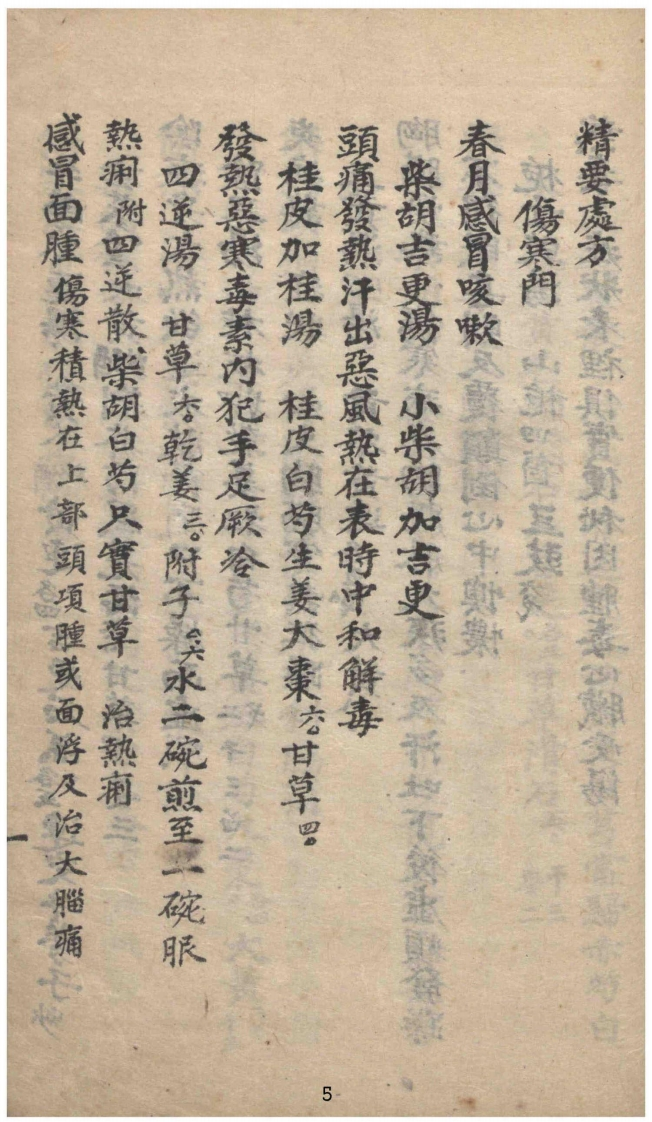 精要處方
傷寒門
春月感冒咳嗽
柴胡吉更湯 小柴胡加吉更
頭痛發熱汗出惡風熱在表時中和解毒
桂皮加桂湯 桂皮白芍生姜大棗六分甘草四分
發熱惡寒毒素內犯手足厥冷
四逆湯 甘草六分乾姜三分附子六水二碗煎至一碗服
熱痢附四逆散柴胡白芍只實甘草 治熱痢
感冒面腫 傷寒積熱在上部頭項腫或面浮及治大腦痛
一
5